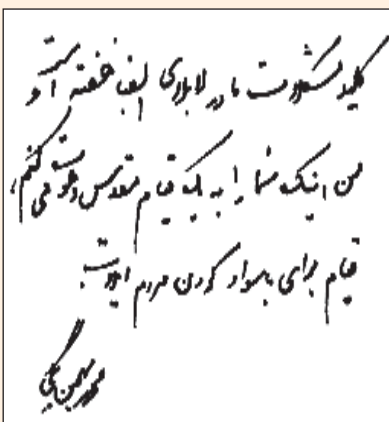 کلید مشکلات ما در لابلای الفبا خفته است
من اینک شما را به یک قیام مقدس دعوت می کنم،
قیام برای باسواد کردن مردم ایلات.
محمد بهمن بیگی